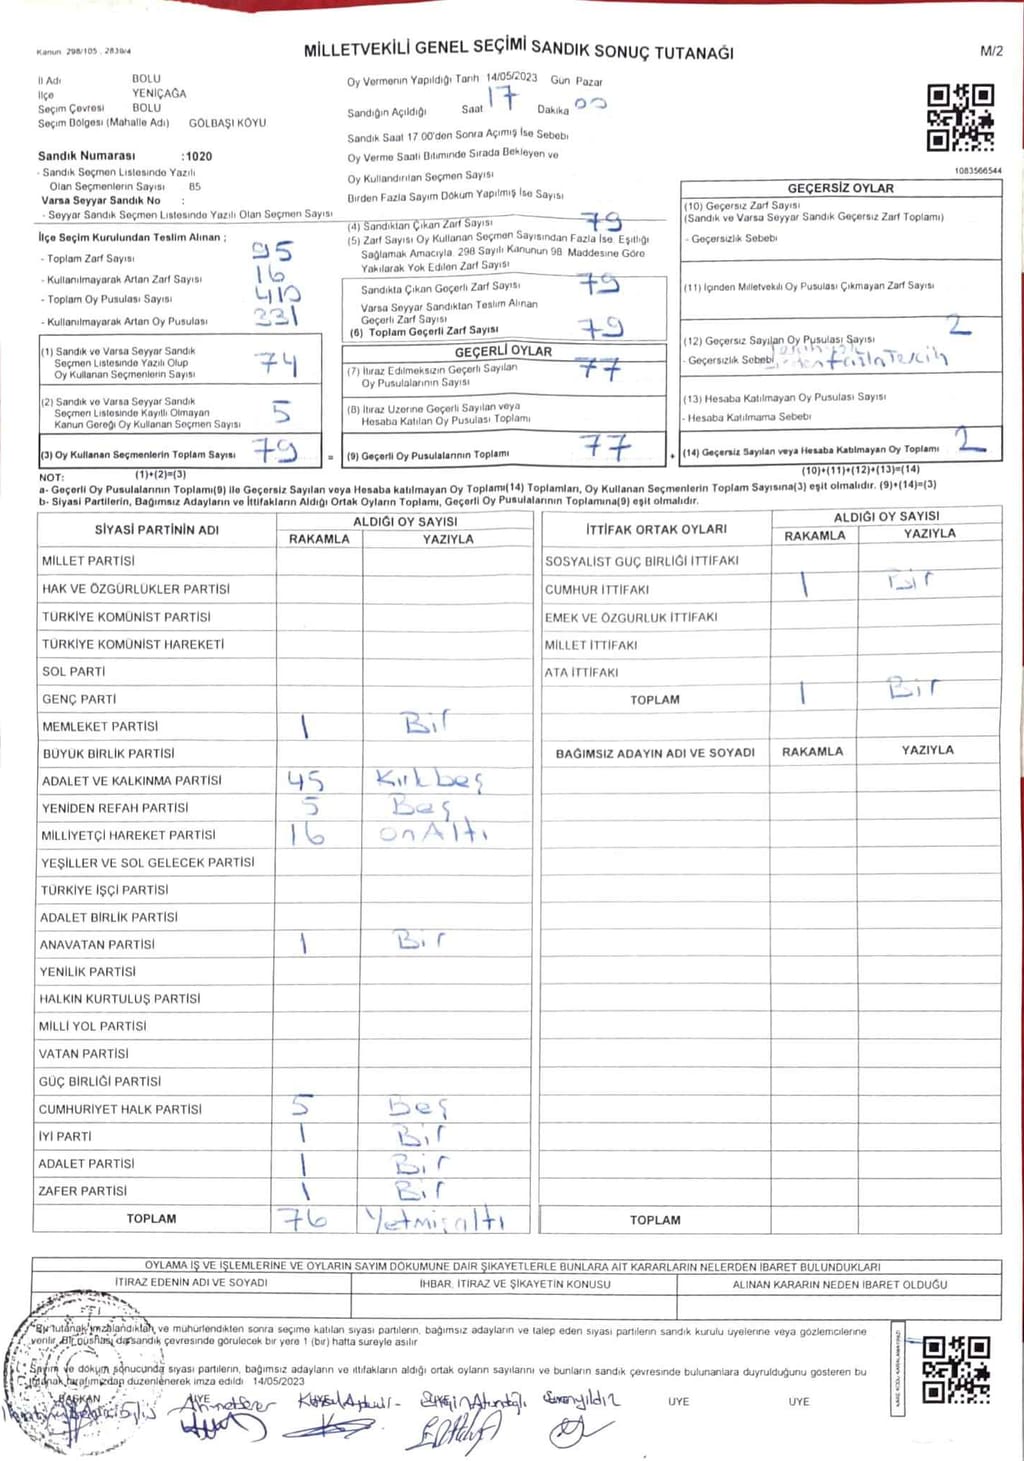 Kanun 298/105, 2839/4
MİLLETVEKİLİ GENEL SEÇİMİ SANDIK SONUÇ TUTANAĞI
M/2
İl Adı BOLU
İlçe YENİÇAĞA
Seçim Çevresi BOLU
Seçim Bölgesi (Mahalle Adı) GÖLBAŞI KÖYÜ
Sandık Numarası :1020
- Sandık Seçmen Listesinde Yazılı
Olan Seçmenlerin Sayısı 85
Varsa Seyyar Sandık No :
- Seyyar Sandık Seçmen Listesinde Yazılı Olan Seçmen Sayısı
Oy Vermenin Yapıldığı Tarih 14/05/2023 Gün Pazar
Sandığın Açıldığı Saat 17 Dakika 00
Sandık Saat 17 00'den Sonra Açımış İse Sebebi
Oy Verme Saati Bitiminde Sırada Bekleyen ve
Oy Kullandırılan Seçmen Sayısı
Birden Fazla Sayım Döküm Yapılmış İse Sayısı
1083566544
İlçe Seçim Kurulundan Teslim Alınan ;
- Toplam Zarf Sayısı 95
- Kullanılmayarak Artan Zarf Sayısı 16
- Toplam Oy Pusulası Sayısı 410
- Kullanılmayarak Artan Oy Pusulası 331
(1) Sandık ve Varsa Seyyar Sandık
Seçmen Listesinde Yazılı Olup
Oy Kullanan Seçmenlerin Sayısı 74
(2) Sandık ve Varsa Seyyar Sandık
Seçmen Listesinde Kayıtlı Olmayan
Kanun Gereği Oy Kullanan Seçmen Sayısı 5
(3) Oy Kullanan Seçmenlerin Toplam Sayısı 79 =
(4) Sandıktan Çıkan Zarf Sayısı 79
(5) Zarf Sayısı Oy Kullanan Seçmen Sayısından Fazla İse, Eşitliği
Sağlamak Amacıyla, 298 Sayılı Kanunun 98 Maddesine Göre
Yakılarak Yok Edilen Zarf Sayısı
Sandıkta Çıkan Geçerli Zarf Sayısı 79
Varsa Seyyar Sandıktan Teslim Alınan
Geçerli Zarf Sayısı
(6) Toplam Geçerli Zarf Sayısı 79
GEÇERLİ OYLAR
(7) İtiraz Edilmeksizin Geçerli Sayılan
Oy Pusulalarının Sayısı 77
(8) İtiraz Üzerine Geçerli Sayılan veya
Hesaba Katılan Oy Pusulası Toplamı
(9) Geçerli Oy Pusulalarının Toplamı 77 +
GEÇERSİZ OYLAR
(10) Geçersiz Zarf Sayısı
(Sandık ve Varsa Seyyar Sandık Geçersiz Zarf Toplamı)
- Geçersizlik Sebebi
(11) İçinden Milletvekili Oy Pusulası Çıkmayan Zarf Sayısı
(12) Geçersiz Sayılan Oy Pusulası Sayısı 2
- Geçersizlik Sebebi Birden Fazla Tercih
(13) Hesaba Katılmayan Oy Pusulası Sayısı
- Hesaba Katılmama Sebebi
(14) Geçersiz Sayılan veya Hesaba Katılmayan Oy Toplamı 2
NOT: (1)+(2)=(3)
(10)+(11)+(12)+(13)=(14)
a- Geçerli Oy Pusulalarının Toplamı(9) ile Geçersiz Sayılan veya Hesaba katılmayan Oy Toplamı(14) Toplamları, Oy Kullanan Seçmenlerin Toplam Sayısına(3) eşit olmalıdır. (9)+(14)=(3)
b- Siyasi Partilerin, Bağımsız Adayların ve İttifakların Aldığı Ortak Oyların Toplamı, Geçerli Oy Pusulalarının Toplamına(9) eşit olmalıdır.
SİYASİ PARTİNİN ADI ALDIĞI OY SAYISI
RAKAMLA YAZIYLA
MİLLET PARTİSİ
HAK VE ÖZGÜRLÜKLER PARTİSİ
TÜRKİYE KOMÜNİST PARTİSİ
TÜRKİYE KOMÜNİST HAREKETİ
SOL PARTİ
GENÇ PARTİ
MEMLEKET PARTİSİ 1 Bir
BÜYÜK BİRLİK PARTİSİ
ADALET VE KALKINMA PARTİSİ 45 Kırkbeş
YENİDEN REFAH PARTİSİ 5 Beş
MİLLİYETÇİ HAREKET PARTİSİ 16 on Altı
YEŞİLLER VE SOL GELECEK PARTİSİ
TÜRKİYE İŞÇİ PARTİSİ
ADALET BİRLİK PARTİSİ
ANAVATAN PARTİSİ 1 Bir
YENİLİK PARTİSİ
HALKIN KURTULUŞ PARTİSİ
MİLLİ YOL PARTİSİ
VATAN PARTİSİ
GÜÇ BİRLİĞİ PARTİSİ
CUMHURİYET HALK PARTİSİ 5 Beş
İYİ PARTİ 1 Bir
ADALET PARTİSİ 1 Bir
ZAFER PARTİSİ 1 Bir
TOPLAM 76 Yetmişaltı
İTTİFAK ORTAK OYLARI ALDIĞI OY SAYISI
RAKAMLA YAZIYLA
SOSYALİST GÜÇ BİRLİĞİ İTTİFAKI
CUMHUR İTTİFAKI 1 Bir
EMEK VE ÖZGÜRLÜK İTTİFAKI
MİLLET İTTİFAKI
ATA İTTİFAKI
TOPLAM 1 Bir
BAĞIMSIZ ADAYIN ADI VE SOYADI RAKAMLA YAZIYLA
TOPLAM
OYLAMA İŞ VE İŞLEMLERİNE VE OYLARIN SAYIM DÖKÜMÜNE DAİR ŞİKAYETLERLE BUNLARA AİT KARARLARIN NELERDEN İBARET BULUNDUKLARI
İTİRAZ EDENİN ADI VE SOYADI İHBAR, İTİRAZ VE ŞİKAYETİN KONUSU ALINAN KARARIN NEDEN İBARET OLDUĞU
Bu tutanak imzalandıktan ve mühürlendikten sonra seçime katılan siyasi partilerin, bağımsız adayların ve talep eden siyasi partilerin sandık kurulu üyelerine veya gözlemcilerine
verilir. Bir nüshası da sandık çevresinde görülecek bir yere 1 (bir) hafta süreyle asılır
Sayım ve döküm sonucunda siyasi partilerin, bağımsız adayların ve ittifakların aldığı ortak oyların sayılarını ve bunların sandık çevresinde bulunanlara duyrulduğunu gösteren bu
tutanak tarafımızdan düzenlenerek imza edildi 14/05/2023
BAŞKAN ÜYE ÜYE ÜYE